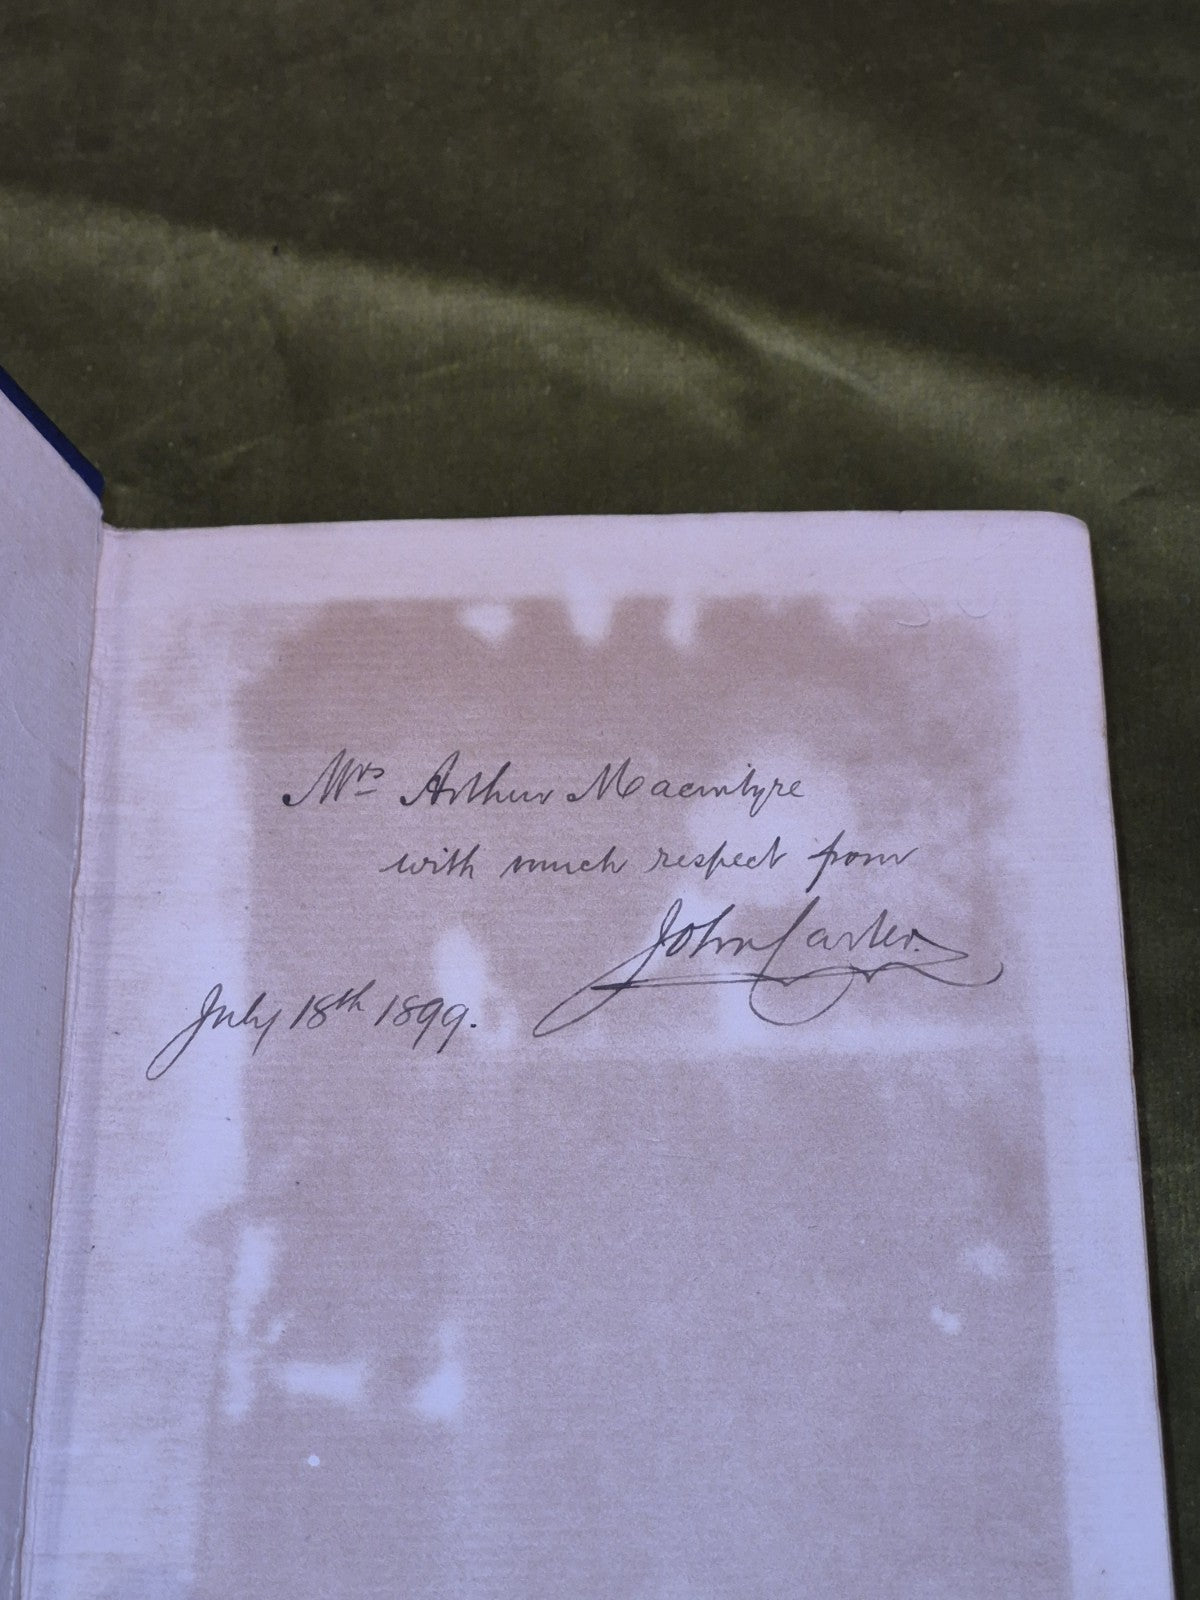 Mrs Arthur Macintyre
with much respect from
John Carter.
July 18th 1899.